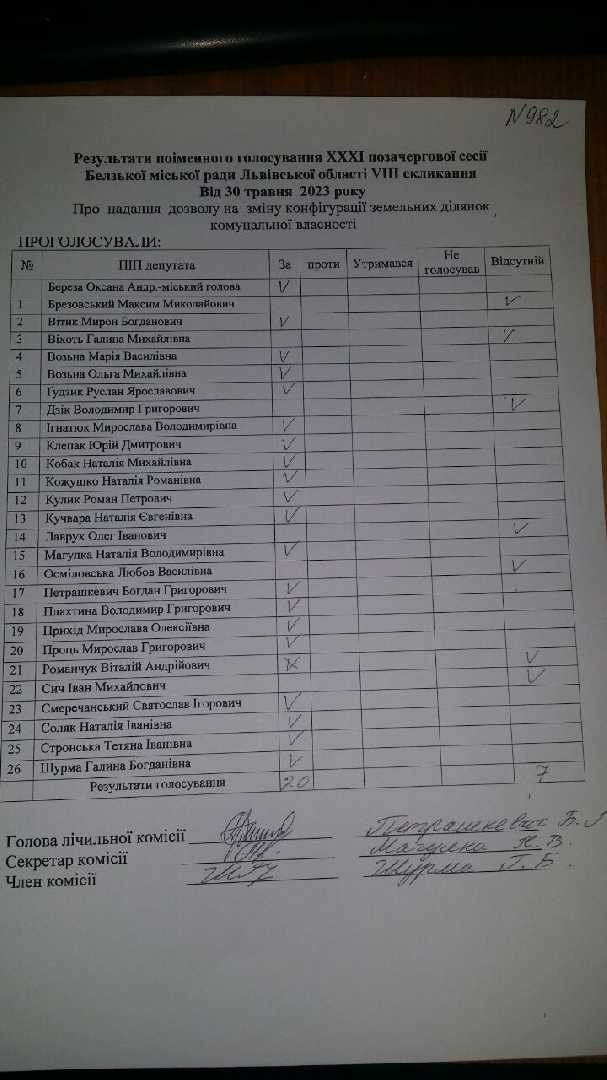 N 982
Результати поіменного голосування XXXI позачергової сесії
Белзької міської ради Львівської області VIII скликання
Від 30 травня 2023 року
Про надання дозволу на зміну конфігурації земельних ділянок
комунальної власності
ПРОГОЛОСУВАЛИ:
№ ПІП депутата За проти Утримався Не голосував Відсутній
Береза Оксана Андр.-міський голова V
1 Брезовський Максим Миколайович V
2 Вітик Мирон Богданович V
3 Віхоть Галина Михайлівна V
4 Возьна Марія Василівна V
5 Возьна Ольга Михайлівна V
6 Гудзик Руслан Ярославович V
7 Дзік Володимир Григорович V
8 Ігнатюк Мирослава Володимирівна V
9 Клепак Юрій Дмитрович V
10 Кобак Наталія Михайлівна V
11 Кожушко Наталія Романівна V
12 Кулик Роман Петрович V
13 Кучвара Наталія Євгенівна V
14 Лаврук Олег Іванович V
15 Магулка Наталія Володимирівна V
16 Осміловська Любов Василівна V
17 Петрашкевич Богдан Григорович V
18 Плахтина Володимир Григорович V
19 Прихід Мирослава Олексіївна V
20 Проць Мирослав Григорович V
21 Романчук Віталій Андрійович V
22 Сич Іван Михайлович V
23 Смеречанський Святослав Ігорович V
24 Соляк Наталія Іванівна V
25 Стронська Тетяна Іванівна V
26 Щурма Галина Богданівна V
Результати голосування 20 7
Голова лічильної комісії Петрашкевич Б.
Секретар комісії Магулка Н. В.
Член комісії Щурма Г. Б.